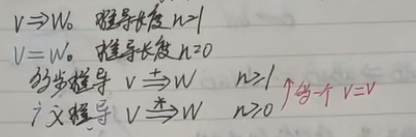 V⇒W。 推导长度 n=1
V=W。 推导长度 n=0
多步推导 V ⇒⁺ W n≥1
广义推导 V ⇒* W n≥0 ↑多一个 V=V